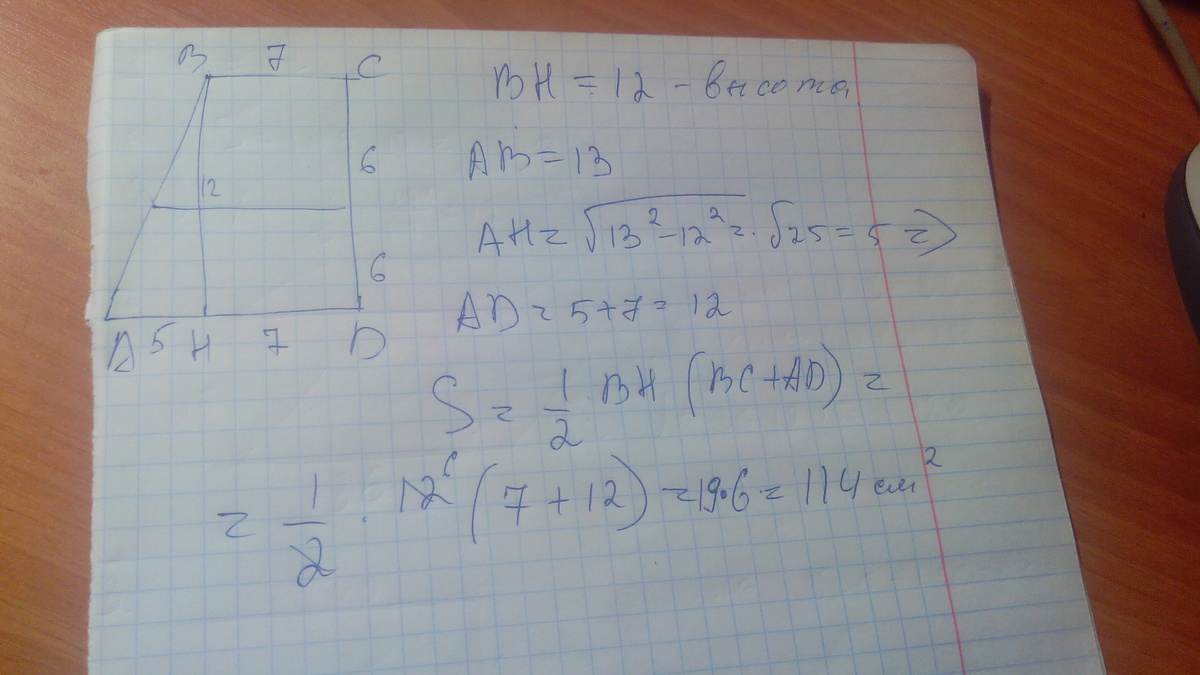 B 7 C
6
12
6
A 5 H 7 D
BH = 12 - высота
AB = 13
AH = √13² - 12² = √25 = 5 =>
AD = 5 + 7 = 12
S = 1/2 BH (BC + AD) =
= 1/2 · 12 6 (7 + 12) = 19·6 = 114 см²